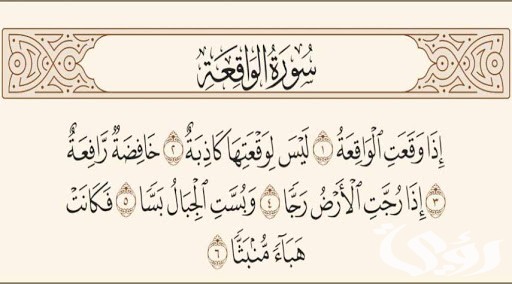 سُورَةُ الوَاقِعَةِ
إِذَا وَقَعَتِ ٱلْوَاقِعَةُ ١ لَيْسَ لِوَقْعَتِهَا كَاذِبَةٌ ٢ خَافِضَةٌ رَّافِعَةٌ
٣ إِذَا رُجَّتِ ٱلْأَرْضُ رَجًّا ٤ وَبُسَّتِ ٱلْجِبَالُ بَسًّا ٥ فَكَانَتْ
هَبَآءً مُّنۢبَثًّا ٦
رؤية